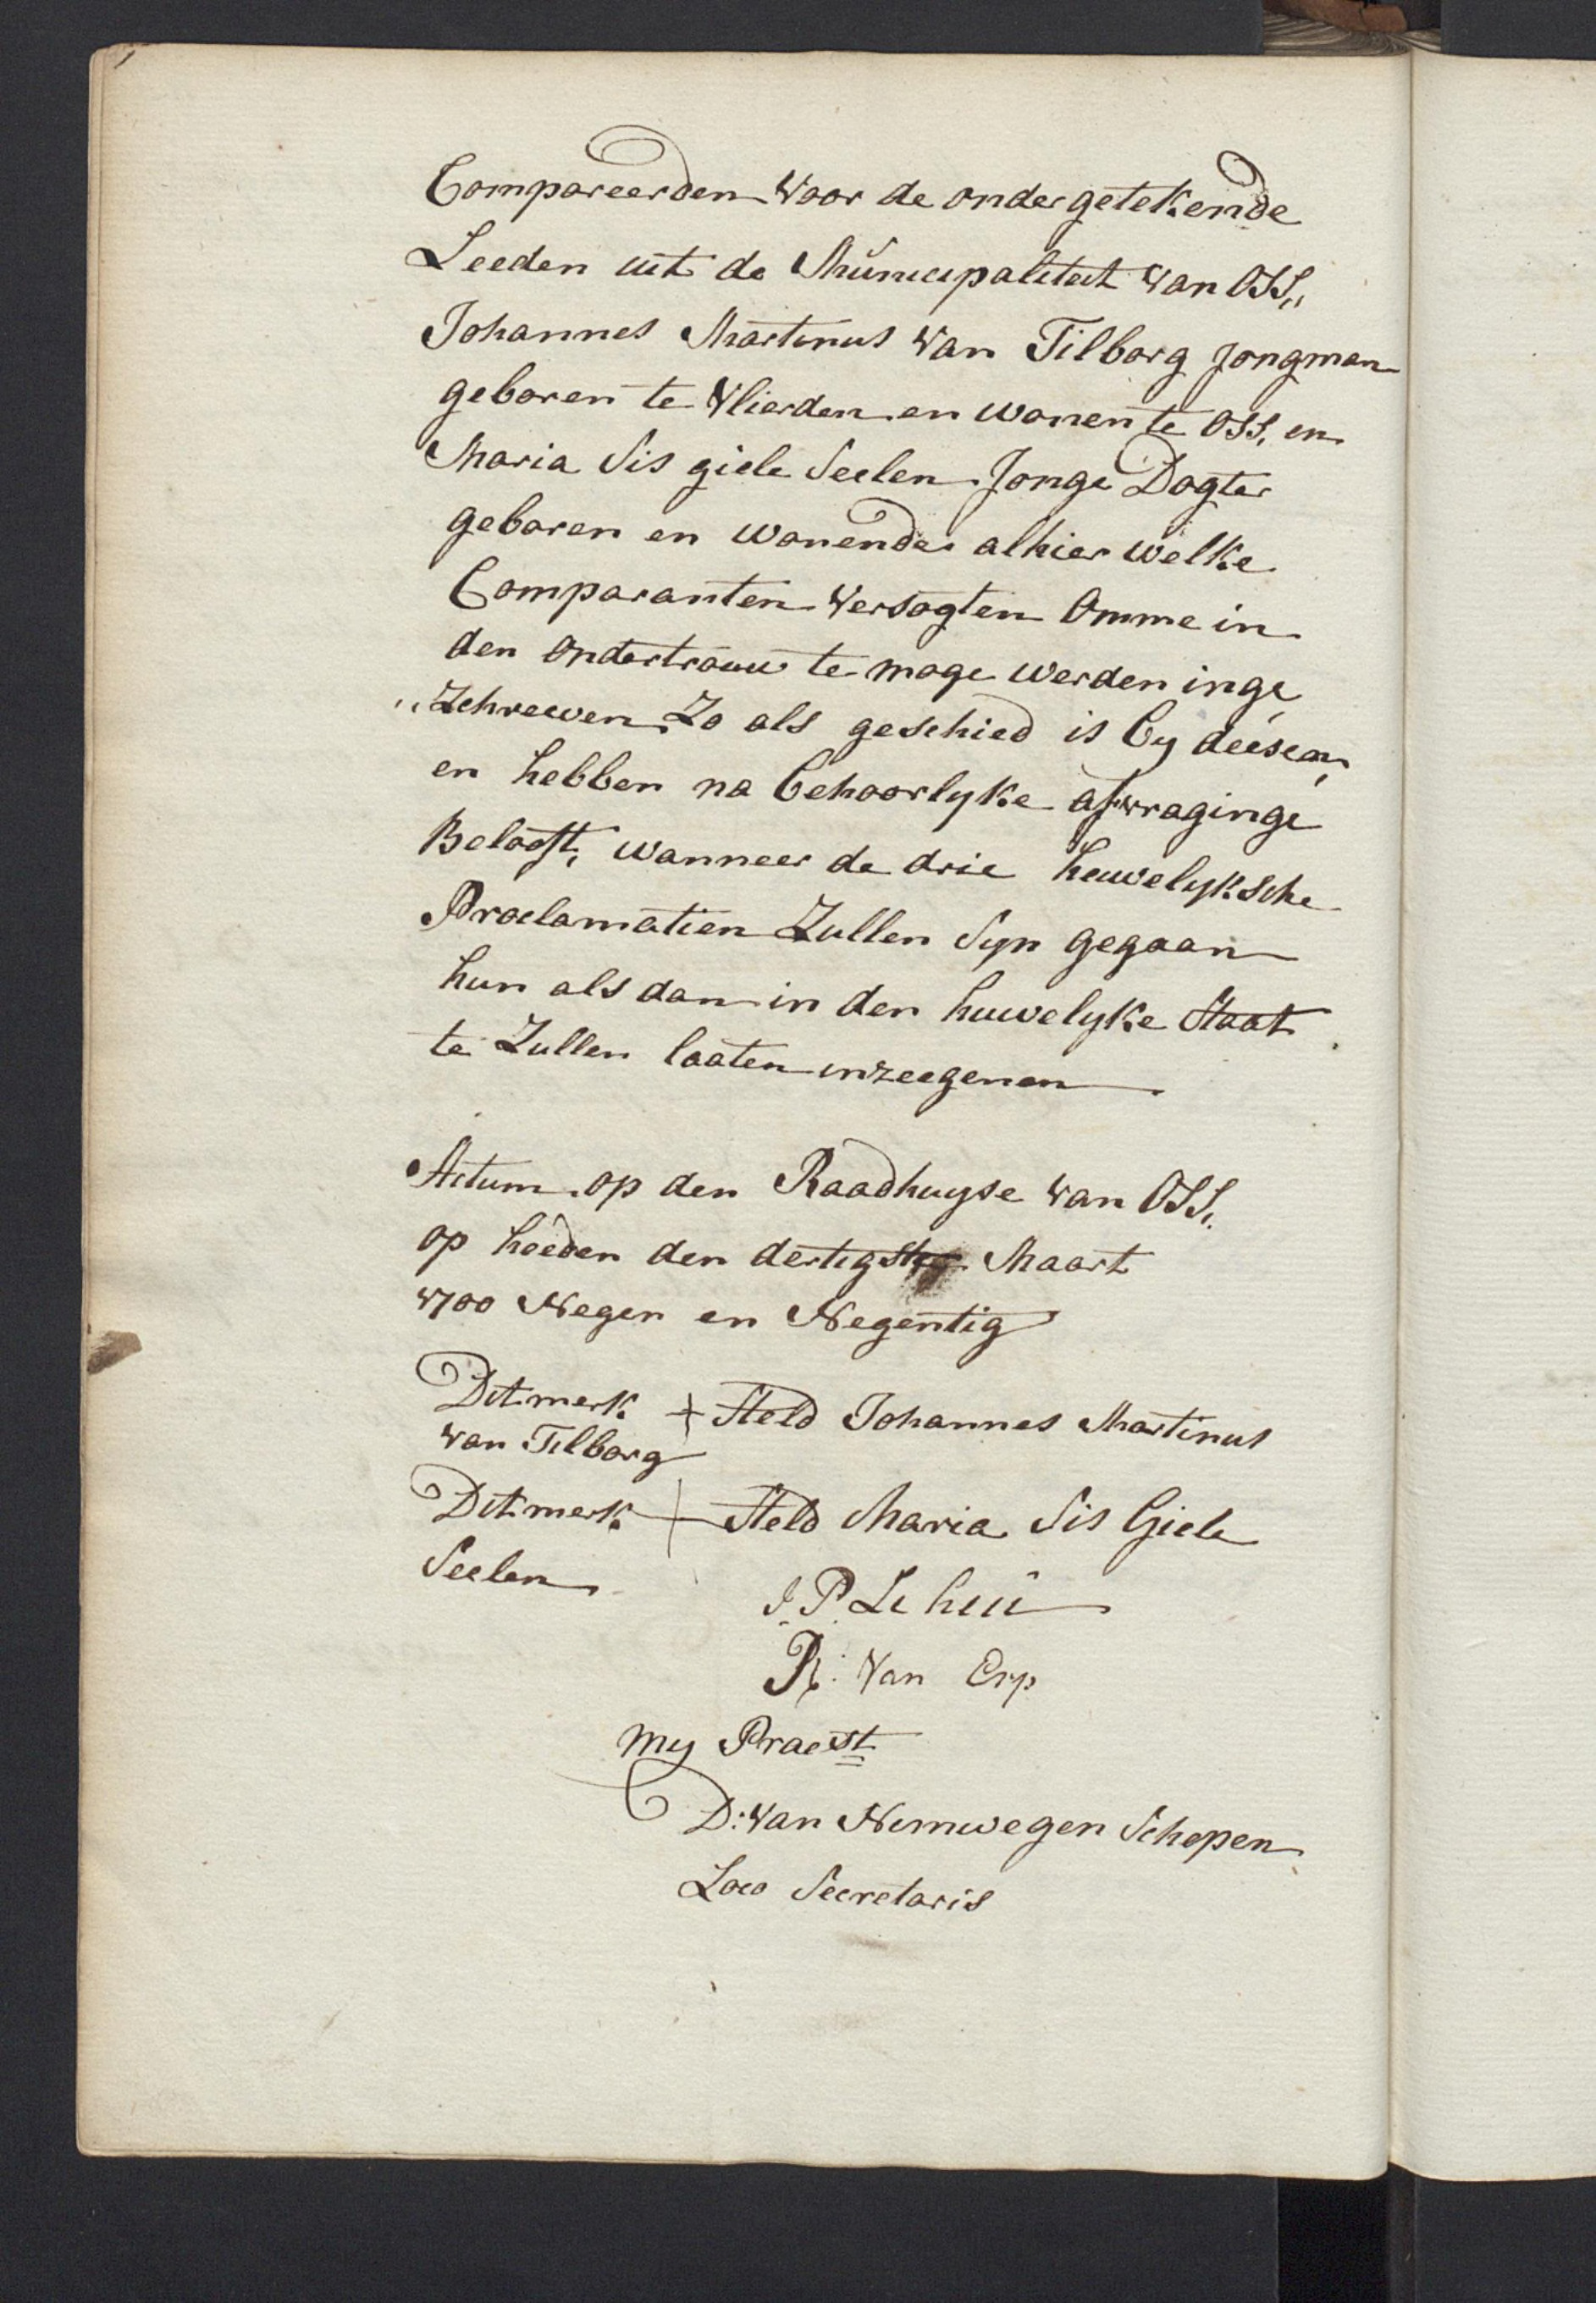 Compareerden Voor de ondergetekende
Leeden uit de Municipaliteit van OSS,,
Johannes Martinus van Tilborg Jongman
geboren te Vlierden en wonen te OSS, en
Maria Sis giele Seelen Jonge Dogter
geboren en wonende alhier welke
Comparanten versogten Omme in
den ondertrouw te moge werden inge
,,Schreeven Zo als geschied is by deesen,
en hebben na behoorlyke afvraginge
Belooft, wanneer de drie huwelyksche
Proclamatien Zullen Syn gegaan
hun als dan in den huwelyke Staat
te Zullen laaten inzeegenen
Actum op den Raadhuyse van OSS,
op heeden den dertigste Maart
1700 Negen en Negentig
Dit merk + Steld Johannes Martinus
van Tilborg
Dit merk + Steld Maria Sis Giele
Seelen
J. P. Le heu
P: Van Erp
My Praest
D: van Nimwegen Schepen
Loco Secretaris